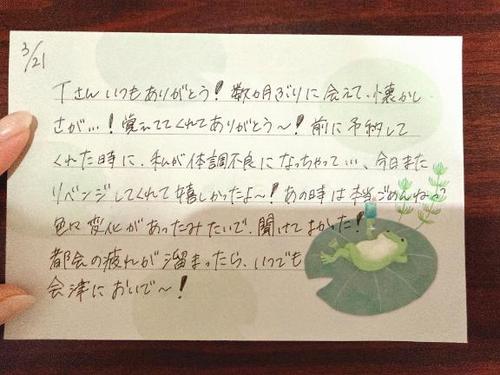 3/21
Tさんいつもありがとう!数ヵ月ぶりに会えて、懐かし
さが…!覚えててくれてありがとう〜!前に予約して
くれた時に、私が体調不良になっちゃって…、今日また
リベンジしてくれて嬉しかったよ〜!あの時は本当ごめんねっ
色々変化があったみたいで、聞けてよかった!
都会の疲れが溜まったら、いつでも
会津においで〜!